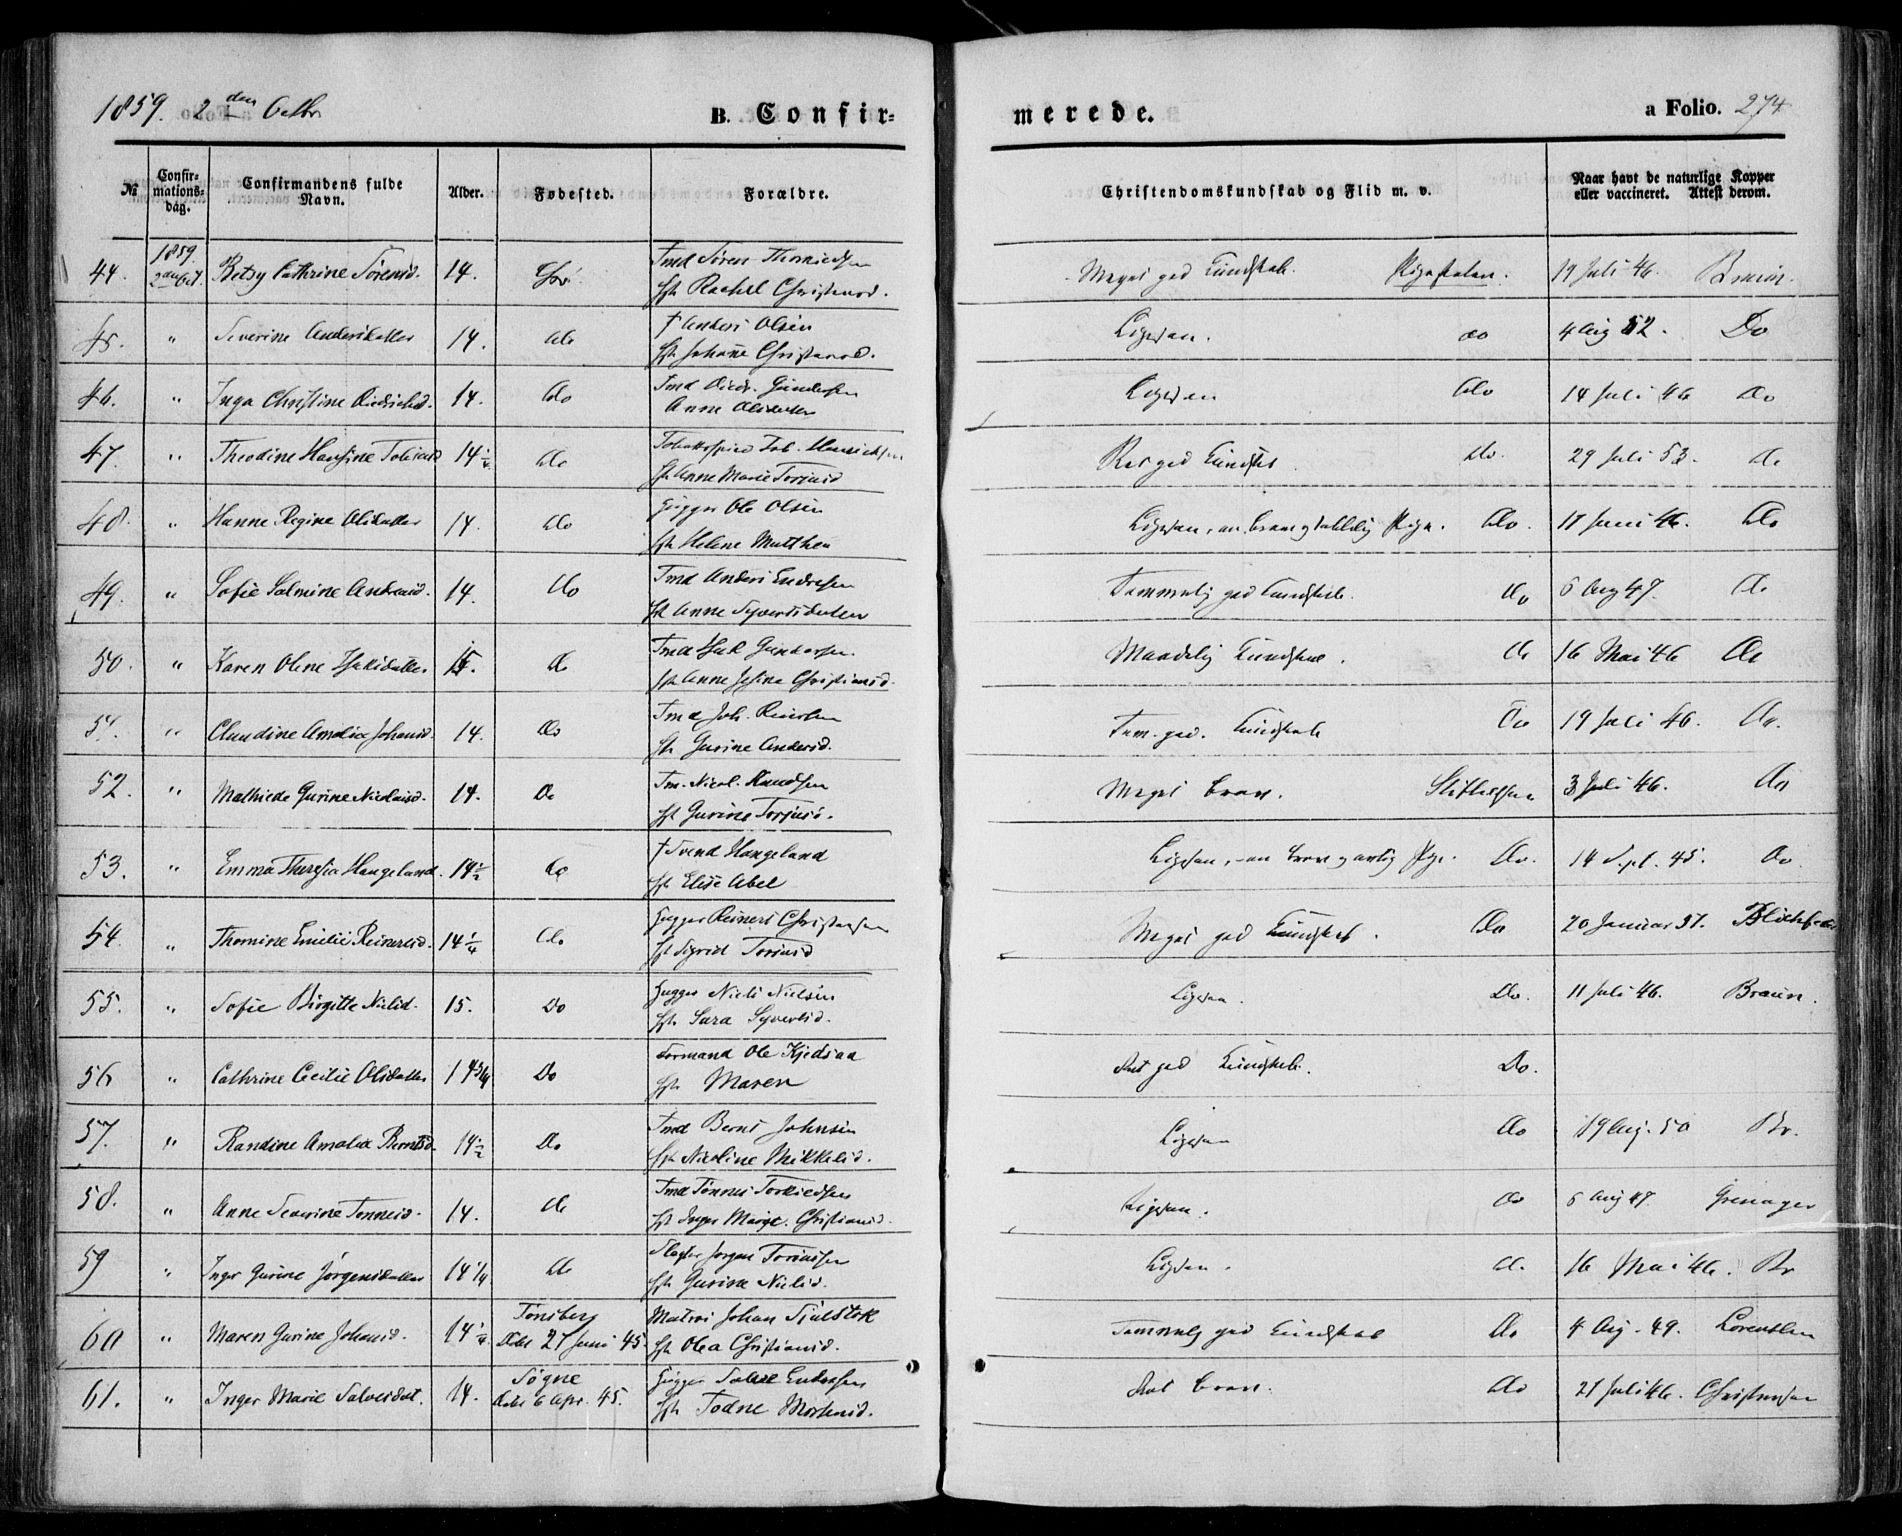 1859. 2den Octbr
B. Confir-
merede.
a Folio. 274
№
Confir-
mations-
dag.
Confirmandens fulde
Navn.
Alder.
Fødested.
Forældre.
Christendomskundskab og Flid m. v.
Naar havt de naturlige Kopper
eller vaccineret. Attest derom.
44. 1859. 2den Oct. Betsy Cathrine Sørensd. 14. Tmd Søren
hst. Rachel Christensd.
Meget god Kundskab. Pigeskolen. 19 Juli 46. Braun.
45. " Severine Andersdatter 14. do † Anders Olsen
hst. Johanne Christensd.
Ligesaa. do 4 Aug 52. Do
46. " Inga Christine Diedrichsd. 14. Do Tmd Diedr. Gundersen
Anne Olsdatter
Ligesaa Do 14 Juli 46 Do
47. " Theodine Hansine Tobiasd 14 1/4 Do Tob. Henrichsen
hst Anne Marie Torjusd
god Kundsk. Do. 29 Juli 53. Do
48. " Hanne Regine Olsdatter 14. Do Ole Olsen
hst Helene Matthea
Ligesaa, en brav og Pige. Do. 17 Juni 46. Do
49. " Sofie Salmine Andersd. 14. Do Tmd Anders Endresen
hst Anne Syvertsdatter
Temmelig god Kundskab. Do 6 Aug 47. Do
50. " Karen Olene Isaksdatter 15. Do Tmd Isak Gundersen.
hst Anne Christiansd.
Maadelig Kundskab. Do 16 Mai 46 Do
51. " Claudine Amalia Johansd. 14. Do Tmd Joh.
hst Gurine Andersd.
Tem. god. Kundskab Do 19 Juli 46. Do.
52. " Mathilde Gurine Nicolaisd. 14. Do Tm. Nicol. Knudsen
hst Gurine Torjusd.
Meget brav. 3 Juli 46. Do
53. " Emma Theresia Hangeland. 14 1/2 Do † Svend Hangeland
hst Elise Abel
Ligesaa, en brav og Pige. Do. 14 Sept. 45. Do.
54. " Thomine Emilie Reinertsd. 14 1/4 Do Reinert Christensen
hst Sigrid Torjusd
Meget god Kundskab. Do 20 Januar 51.
55. " Sofie Birgitte Nielsd. 15. Do Niels Nielsen
hst Sara Syvertsd.
Ligesaa. Do. 11 Juli 46. Braun.
56 " Cathrine Cecilie Olsdatter 14 3/4 Do Formand Ole Kjedsaa
hst Maren
god Kundskab. Do.
57. " Randine Amalia Berntsd. 14 1/2 Do Tmd Bernt Johnsen
hst Nicoline Mikkelsd.
Ligesaa Do 19 Aug. 50 Br.
58. " Anne Severine Tønnesd. 14. Do Tmd Tønnes Torkildsen
hst Inger Margr. Christiansd.
Ligesaa. Do 6 Aug 47.
59 " Inger Gurine Jørgensdatter 14 1/4 Do Slagter Jørgen Torjussen
hst Gurine Nielsd.
Ligesaa. Do. 16 Mai 46. Br
60 " Maren Gurine Johansd. 14 1/4 Tønsberg
Døbt 27 Juni 45. Matros Johan
hst Olea Christiansd.
Temmelig god Kundskab Do 4 Aug. 49. Lorentsen
61. " Inger Marie Salvesdat. 14. Søgne
Døbt 6 Apr. 45. Salve Endresen
hst Todne Mortensd.
brav. Do 21 Juli 46. Christensen